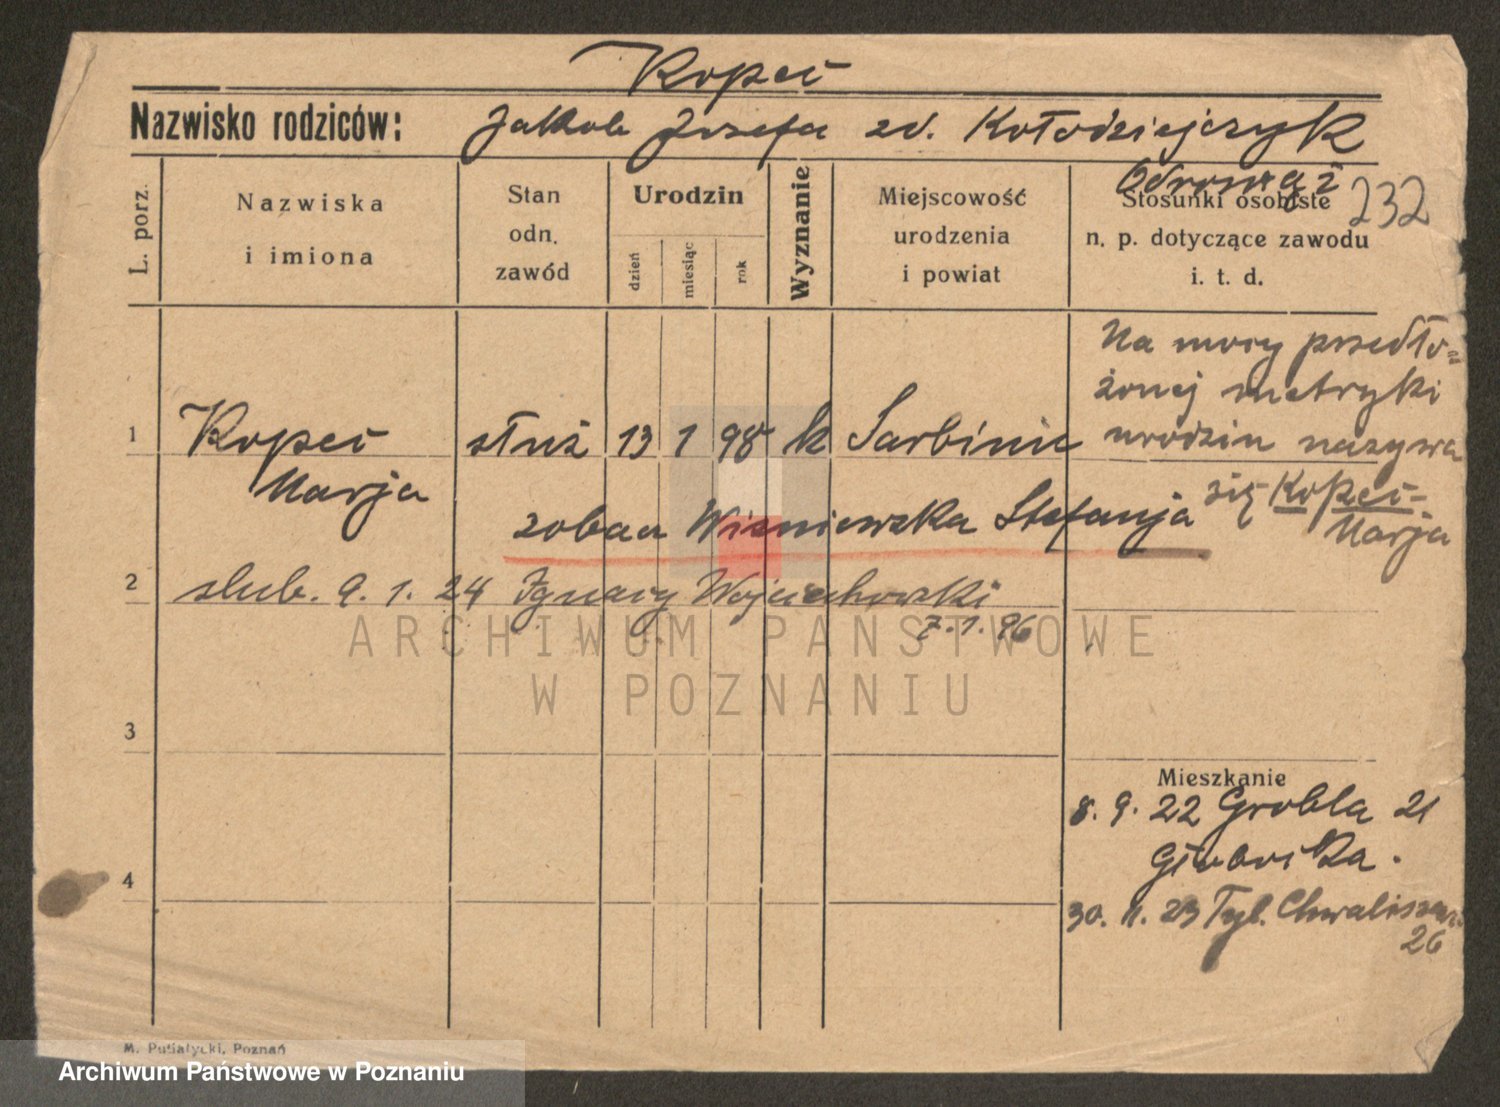 Kopeć
Nazwisko rodziców: Jakób Józefa zd. Kołodziejczyk
Odrowąż
232
L. porz.
Nazwiska
i imiona
Stan
odn.
zawód
Urodzin
dzień
miesiąc
rok
Wyznanie
Miejscowość
urodzenia
i powiat
Stosunki osobiste
n. p. dotyczące zawodu
i. t. d.
Na mocy przedło-
żonej metryki
urodzin nazywa
się Kopeć
Marja
1 Kopeć służ 13 1 98 k Sarbinie
Marja
zobacz Wiśniewska Stefanja
2 slub. 9. 1. 24 Ignacy Wojciechowski
7. 1. 96
ARCHIWUM PAŃSTWOWE
W POZNANIU
3
Mieszkanie
8. 9. 22 Grobla 21
4
30. 11. 23 Tyl. Chwaliszewo
26
M. Putiatycki, Poznań
Archiwum Państwowe w Poznaniu